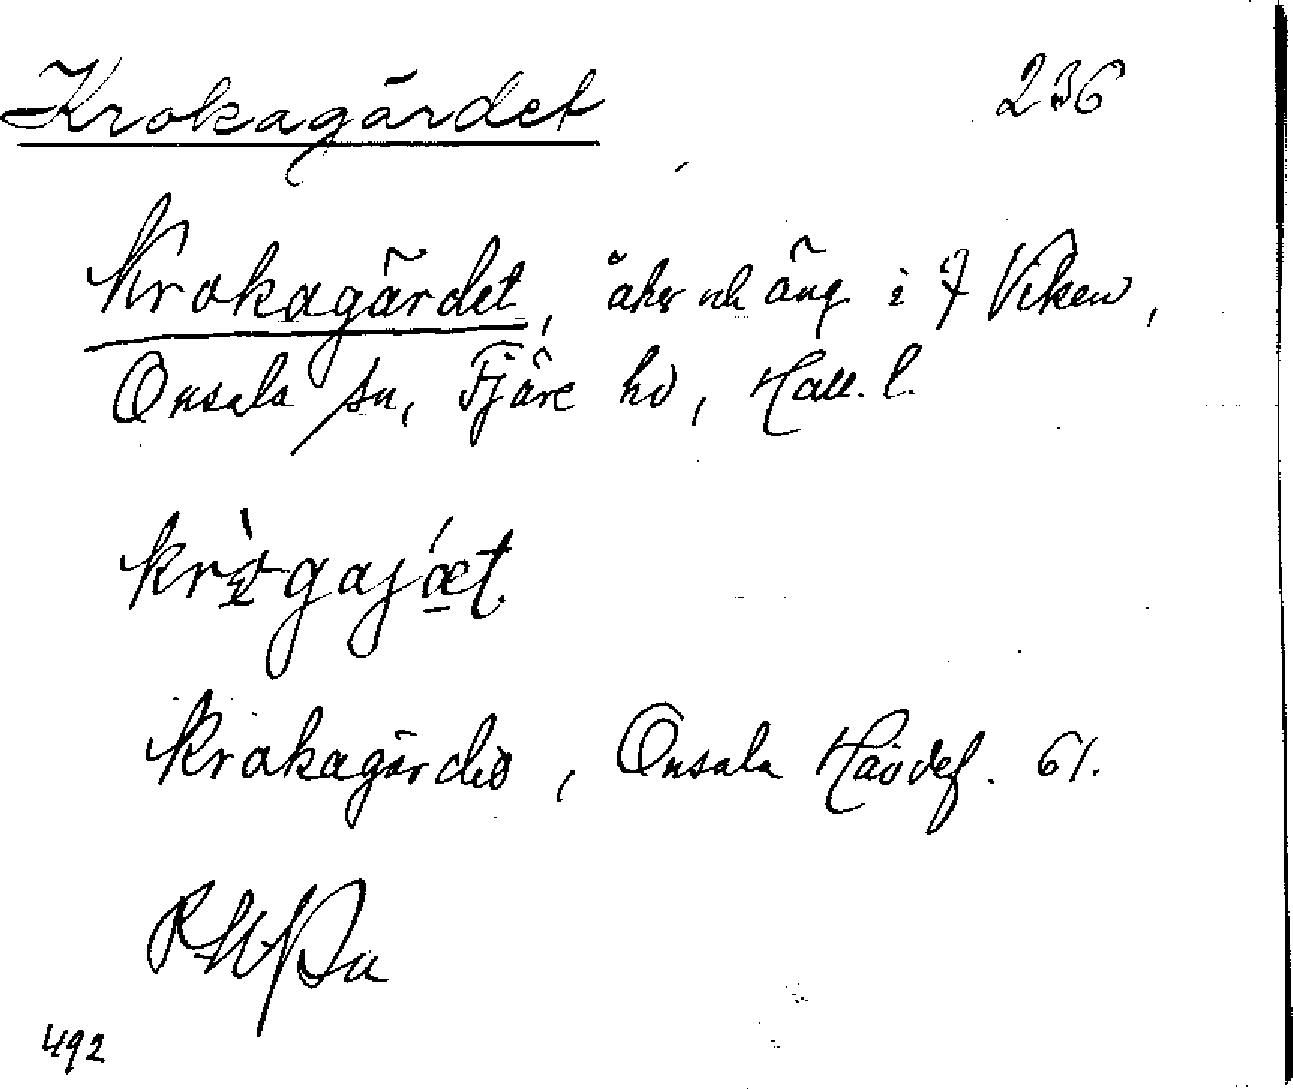 Krokagärdet 236
Krokagärdet, åker och äng i 7 Viken,
Onsala sn, Fjäre hd, Hall. l.
Krokagärdes, Onsala Hävdef. 61.
492